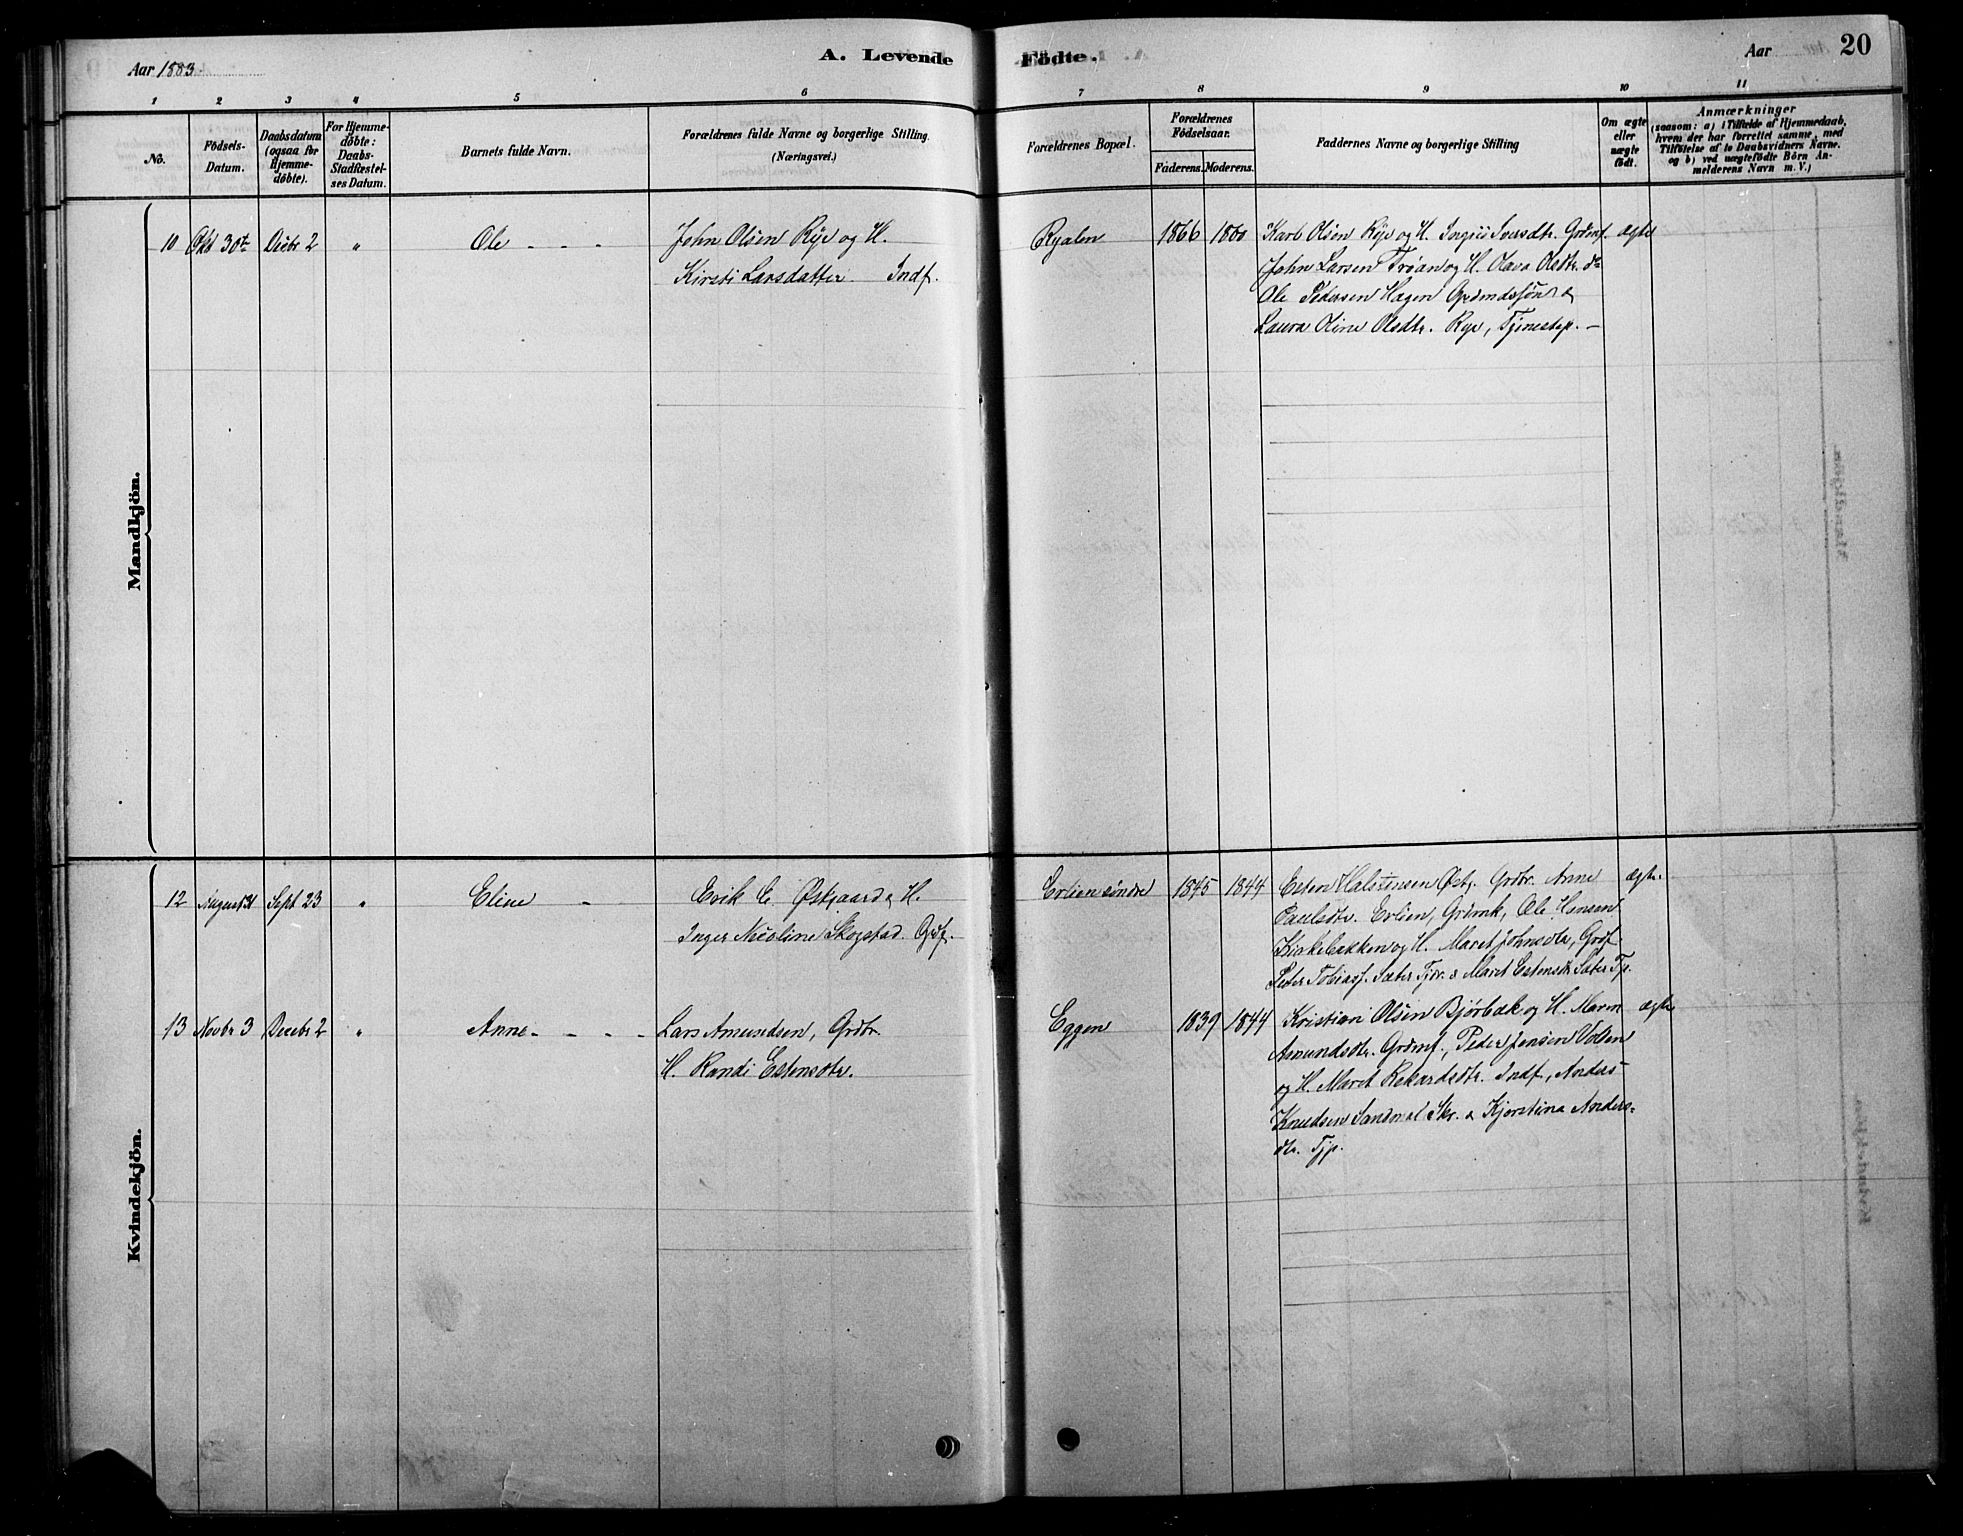 Aar 1883.
A. Levende Födte.
Aar
20
1 2 3 4 5 6 7 8 9 10 11
No.
Födsels-
Datum.
Daabsdatum
(ogsaa for
Hjemme-
döbte).
For Hjemme-
döbte:
Daabs-
Stadfæstel-
ses Datum.
Barnets fulde Navn.
Forældrenes fulde Navne og borgerlige Stilling.
(Næringsvei.)
Forældrenes Bopæl.
Forældrenes
Födselsaar.
Faderens. Moderens.
Faddernes Navne og borgerlige Stilling
Om ægte
eller
uægte
födt.
Anmærkninger
(saasom: a) i Tilfælde af Hjemmedaab,
hvem der har forrettet samme, med
Tilföielse af to Daabsvidners Navne.
og b) ved uægtefödte Börn An-
melderens Navn m. V.)
Mandkjön.
10 Okt 30te Decbr 2 " Ole - - -
John Olsen Rye og H.
Kirsti Larsdatter Indf.
Ryalen 1866 1860
Olsen Rye og H. Iversdtr. Grdmf. ægte
John Larsen Trøan og H. Olava Olsdtr. do
Ole Pedersen Hagen &
Laura Oline Olsdtr. Rye, Tjenestep. -
Kvindekjön.
12 August 31 Sept 23 " Eline -
Erik E. Østgaard & H.
Inger Nicoline Skogstad. Grdf.
Erlien söndre 1845 1844
Esten Halstensen Østg. Grdbr. Anne ægte.
Paulsdtr. Erlien, Grdmk, Ole Hansen
Kirkebakken og H. Maret Johnsdtr, Grdf
Peter Tobiasf. Sæter Tjdr. & Maret Estensdtr Sæter Tp.
13 Novbr 3 Decebr 2 " Anne - - - -
Lars Amundsen, Grdbr.
H. Randi Estensdtr.
Eggen 1839 1844
Kristian Olsen Bjørbæk og H. Maren ægte
Amundsdtr. Grdmf., Peder Jensen Volden
og H. Maret Rekardsdtr. Indf, Anders
Knudsen Sandnal Skr. & Kjerstina Anders-
dtr. Tjp.